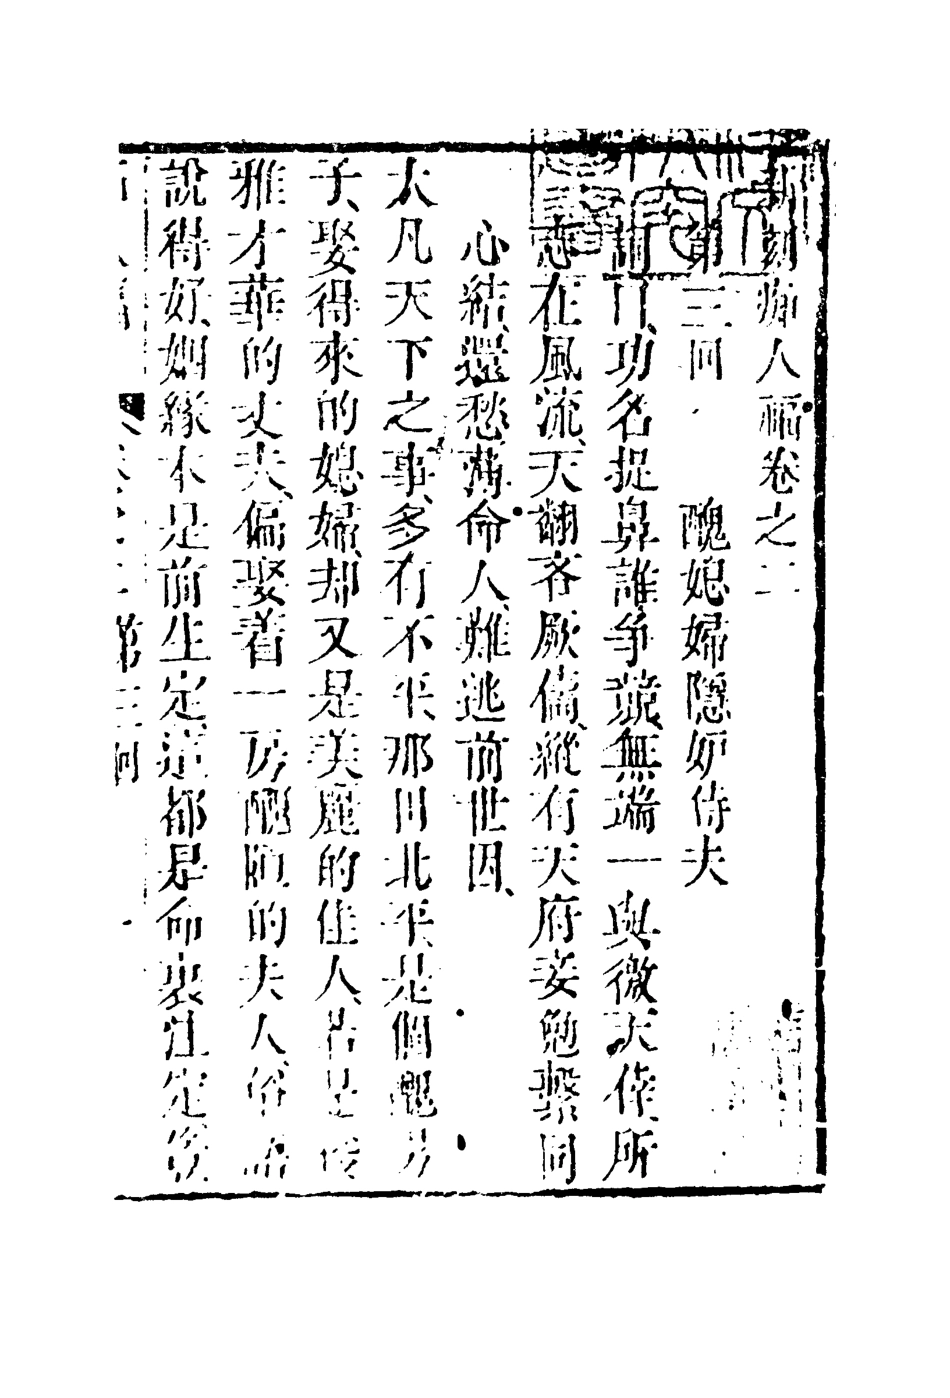 新刻痴人福卷之二
第三回 醜媳婦隱妒侍夫
詞曰功名捉鼻誰爭競無端一與微天倖所
志在風流天翻吝厥儔縱有天府妾勉繫同
心結還愁薄命人難逃前世因
大凡天下之事多有不平那田北平是個醜男
子娶得來的媳婦却又是美麗的佳人若是
雅才華的丈夫偏娶着一房醜陋的夫人俗語
說得好姻緣本是前生定這都是命裏注定
第三回